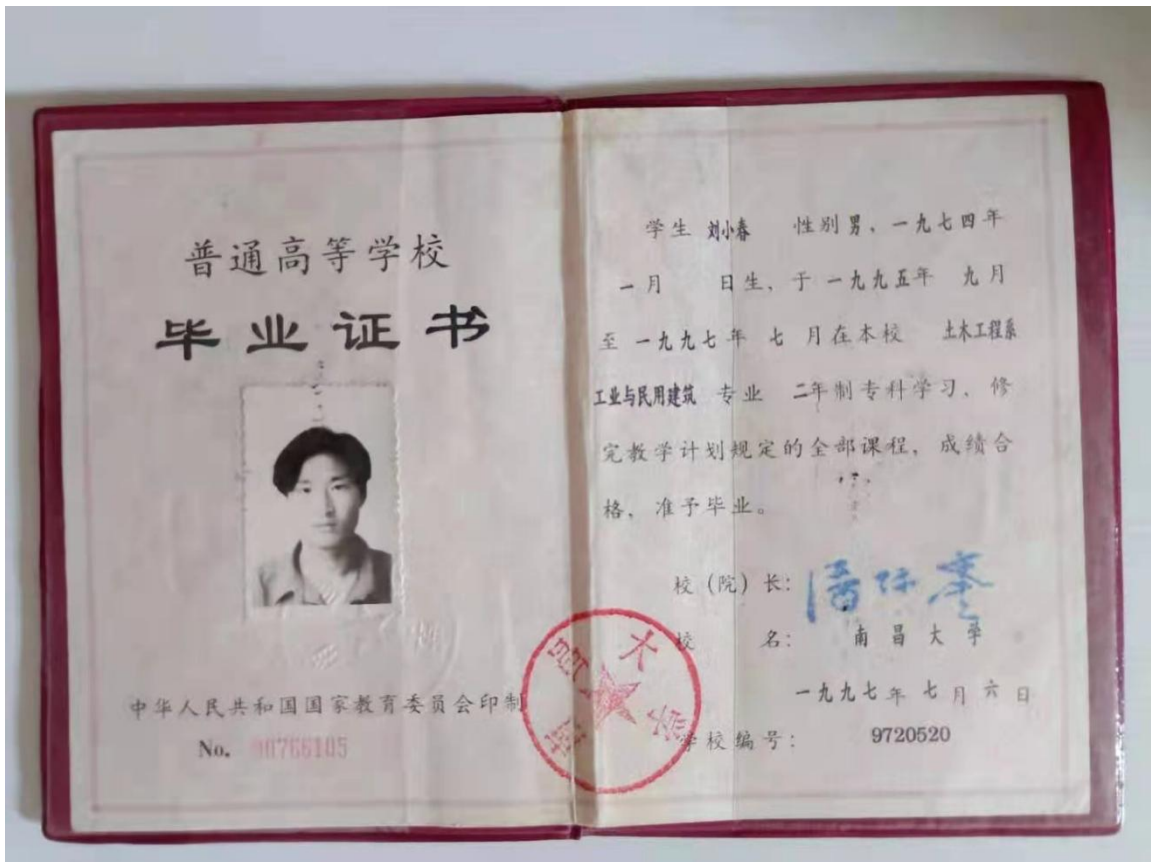 普通高等学校
毕业证书
中华人民共和国国家教育委员会印制
No. 00766105
学生 刘小春 性别 男、一九七四年
一月 日生、于 一九九五年 九月
至 一九九七年 七 月在本校 土木工程系
工业与民用建筑 专业 二年制专科学习、修
完教学计划规定的全部课程, 成绩合
格、准予毕业。
校(院)长: 潘际銮
校 名: 南昌大学
一九九七年七月六日
学校编号: 9720520
南昌大学